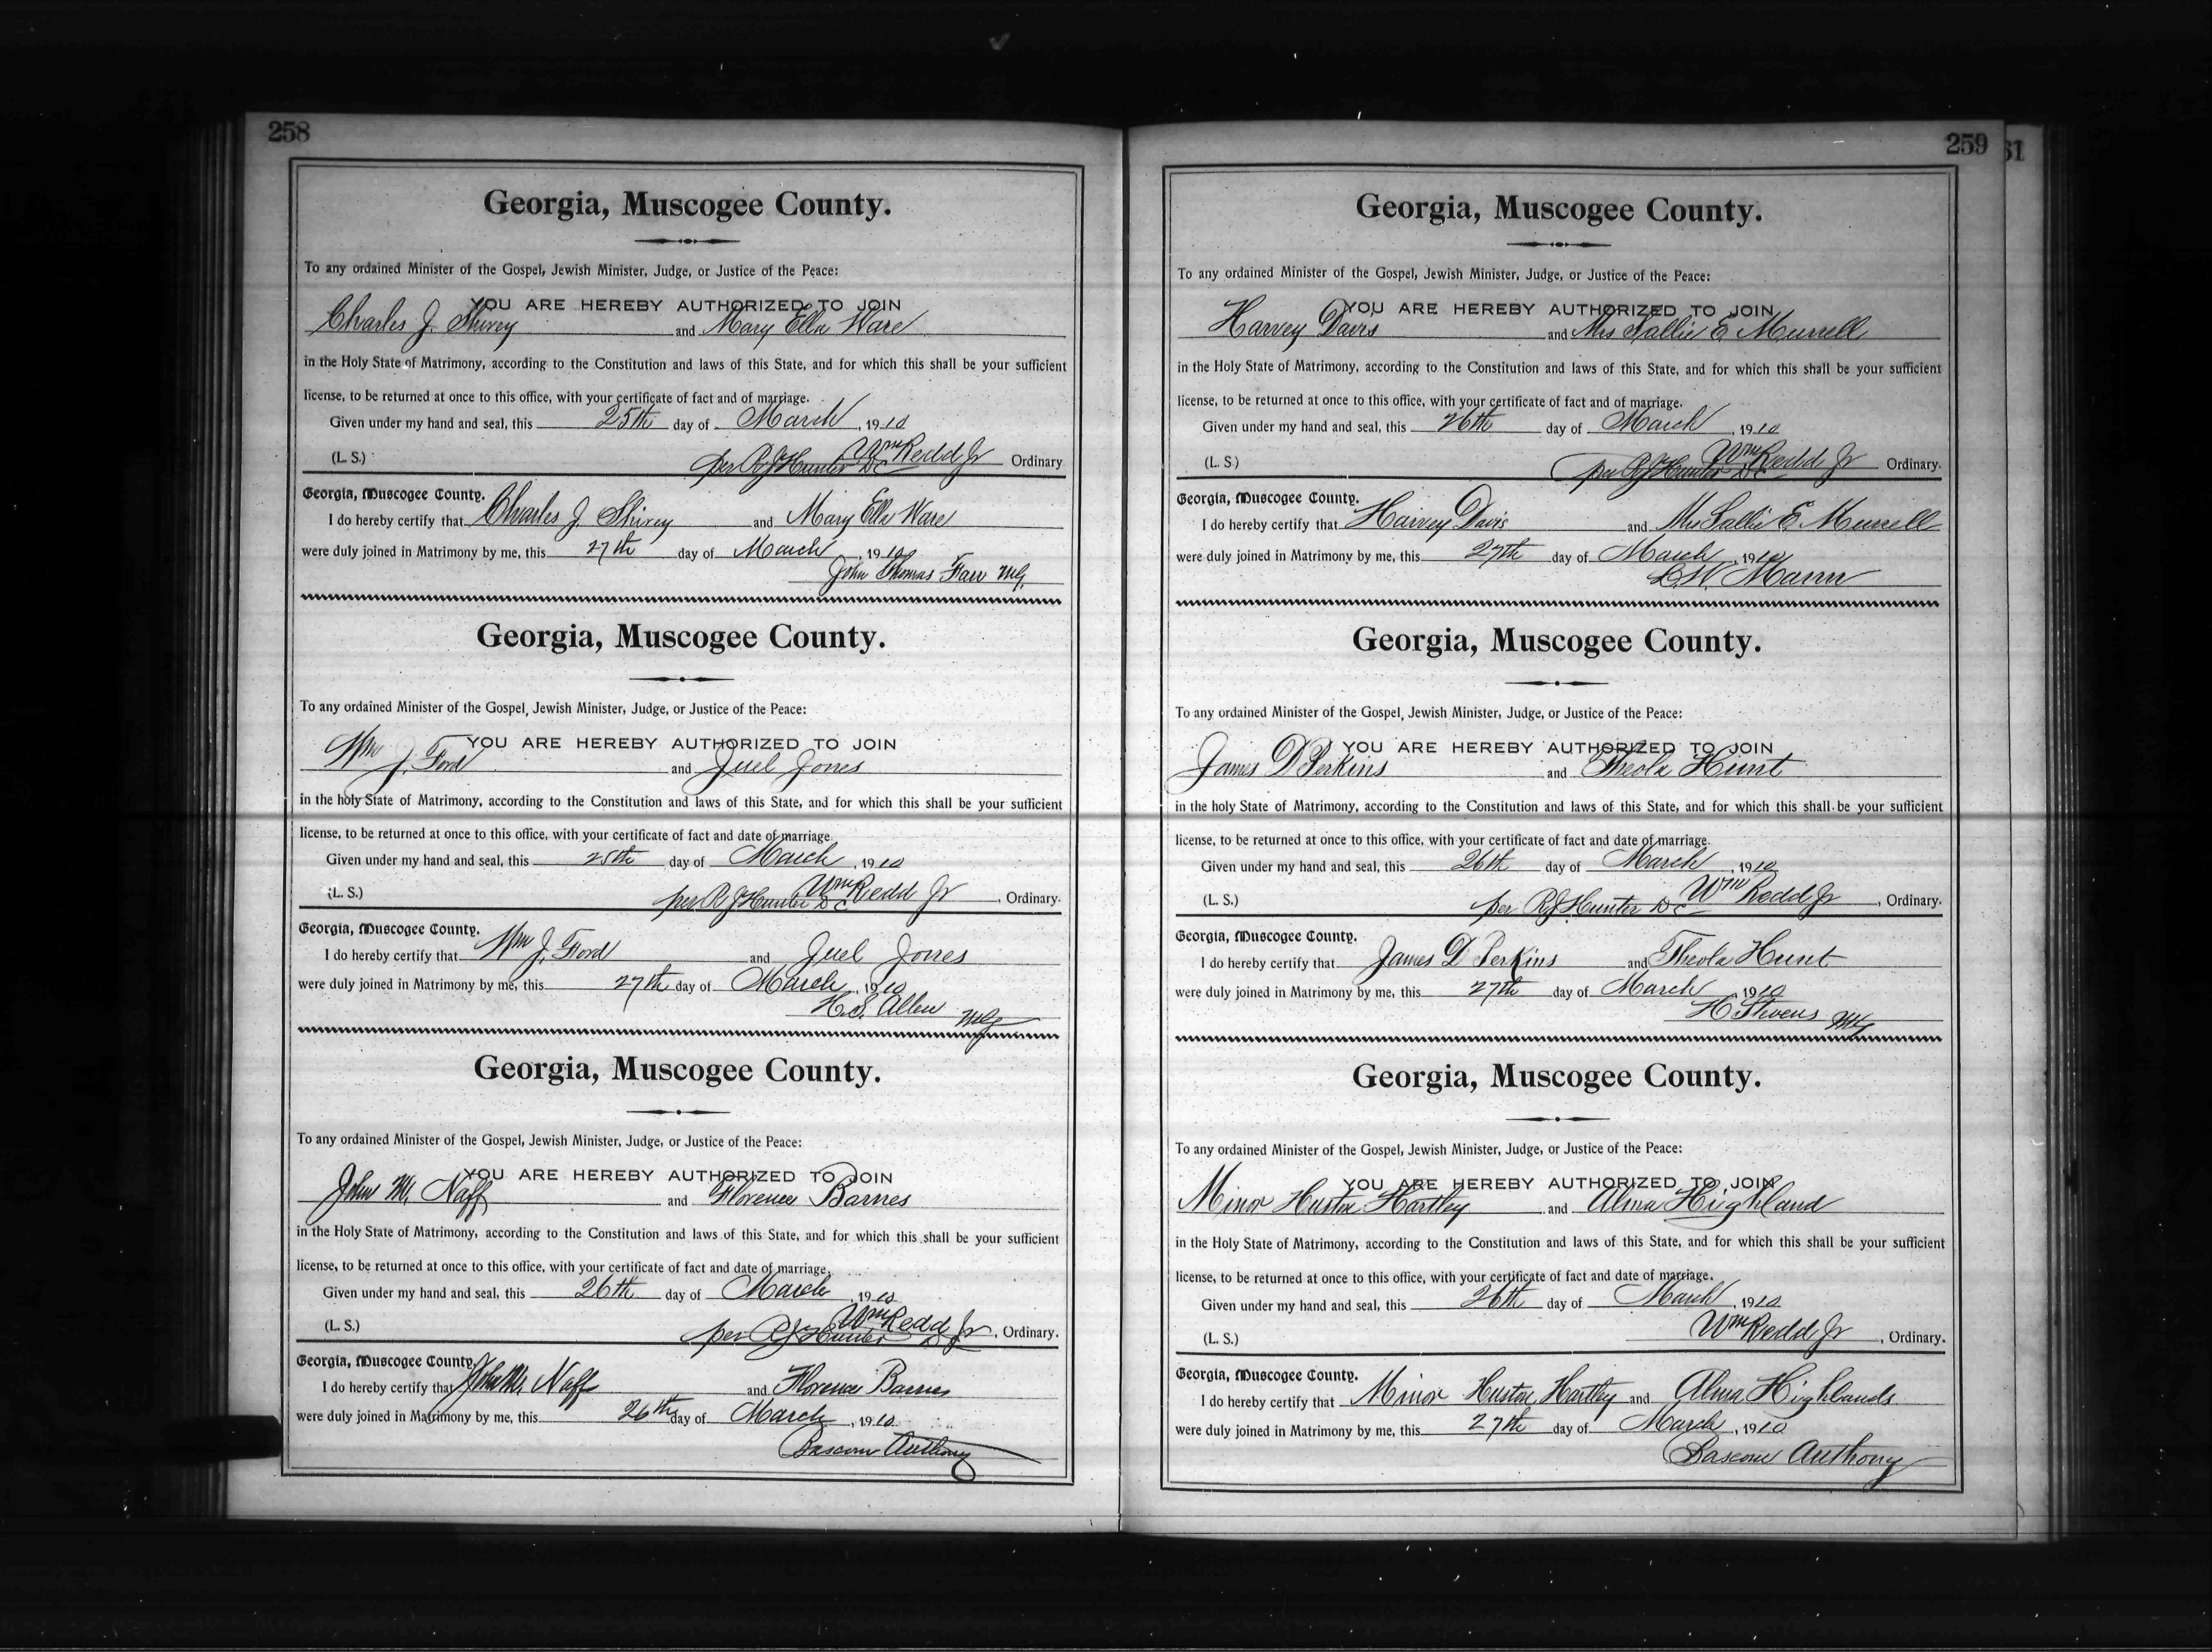 258
Georgia, Muscogee County.
To any ordained Minister of the Gospel, Jewish Minister, Judge, or Justice of the Peace:
YOU ARE HEREBY AUTHORIZED TO JOIN
Charles J. Shirey and Mary Ella Ware
in the Holy State of Matrimony, according to the Constitution and laws of this State, and for which this shall be your sufficient
license, to be returned at once to this office, with your certificate of fact and of marriage.
Given under my hand and seal, this 25th day of March, 1910
Wm Redd Jr
(L. S.) per R J Hunter DC Ordinary
Georgia, Muscogee County.
I do hereby certify that Charles J. Shirey and Mary Ella Ware
were duly joined in Matrimony by me, this 27th day of March, 1910
John Thomas Farr MG,
Georgia, Muscogee County.
To any ordained Minister of the Gospel, Jewish Minister, Judge, or Justice of the Peace:
YOU ARE HEREBY AUTHORIZED TO JOIN
Wm J. Ford and Juel Jones
in the holy State of Matrimony, according to the Constitution and laws of this State, and for which this shall be your sufficient
license, to be returned at once to this office, with your certificate of fact and date of marriage.
Given under my hand and seal, this 25th day of March, 1910
Wm Redd Jr
(L. S.) per R J Hunter DC, Ordinary.
Georgia, Muscogee County.
I do hereby certify that Wm J. Ford and Juel Jones
were duly joined in Matrimony by me, this 27th day of March, 1910
H. S. Allen MG
Georgia, Muscogee County.
To any ordained Minister of the Gospel, Jewish Minister, Judge, or Justice of the Peace:
YOU ARE HEREBY AUTHORIZED TO JOIN
John M. Naff and Florence Barnes
in the Holy State of Matrimony, according to the Constitution and laws of this State, and for which this shall be your sufficient
license, to be returned at once to this office, with your certificate of fact and date of marriage.
Given under my hand and seal, this 26th day of March, 1910
Wm Redd Jr
(L. S.) per R J Hunter, Ordinary.
Georgia, Muscogee County.
I do hereby certify that John M. Naff and Florence Barnes
were duly joined in Matrimony by me, this 26th day of March, 1910.
Bascom Anthony
259
61
Georgia, Muscogee County.
To any ordained Minister of the Gospel, Jewish Minister, Judge, or Justice of the Peace:
YOU ARE HEREBY AUTHORIZED TO JOIN
Harvey Davis and Mrs Sallie E. Murrell
in the Holy State of Matrimony, according to the Constitution and laws of this State, and for which this shall be your sufficient
license, to be returned at once to this office, with your certificate of fact and of marriage.
Given under my hand and seal, this 26th day of March, 1910
Wm Redd Jr
(L. S.) per R J Hunter DC, Ordinary.
Georgia, Muscogee County.
I do hereby certify that Harvey Davis and Mrs Sallie E. Murrell
were duly joined in Matrimony by me, this 27th day of March, 1910
Mann
Georgia, Muscogee County.
To any ordained Minister of the Gospel, Jewish Minister, Judge, or Justice of the Peace:
YOU ARE HEREBY AUTHORIZED TO JOIN
James D Perkins and Theola Hunt
in the holy State of Matrimony, according to the Constitution and laws of this State, and for which this shall be your sufficient
license, to be returned at once to this office, with your certificate of fact and date of marriage.
Given under my hand and seal, this 26th day of March, 1910
Wm Redd Jr
(L. S.) per R J Hunter DC, Ordinary.
Georgia, Muscogee County.
I do hereby certify that James D Perkins and Theola Hunt
were duly joined in Matrimony by me, this 27th day of March, 1910
H Stevens MG
Georgia, Muscogee County.
To any ordained Minister of the Gospel, Jewish Minister, Judge, or Justice of the Peace:
YOU ARE HEREBY AUTHORIZED TO JOIN
Minor Huston Hartley and Alma Highland
in the Holy State of Matrimony, according to the Constitution and laws of this State, and for which this shall be your sufficient
license, to be returned at once to this office, with your certificate of fact and date of marriage.
Given under my hand and seal, this 26th day of March, 1910
(L. S.) Wm Redd Jr, Ordinary.
Georgia, Muscogee County.
I do hereby certify that Minor Huston Hartley and Alma Highlands
were duly joined in Matrimony by me, this 27th day of March, 1910
Bascom Anthony